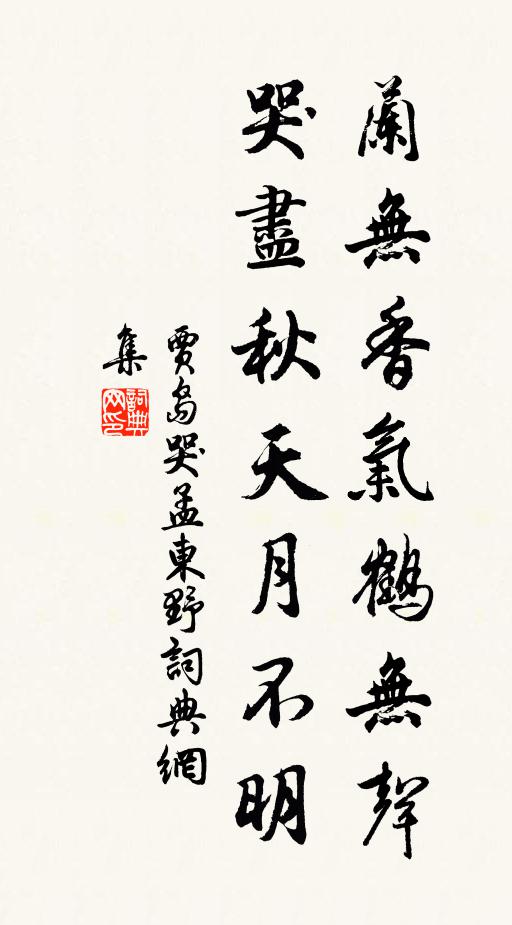 蘭無香氣鶴無聲
哭盡秋天月不明
賈島哭孟東野詞典網
集
詞典
网印